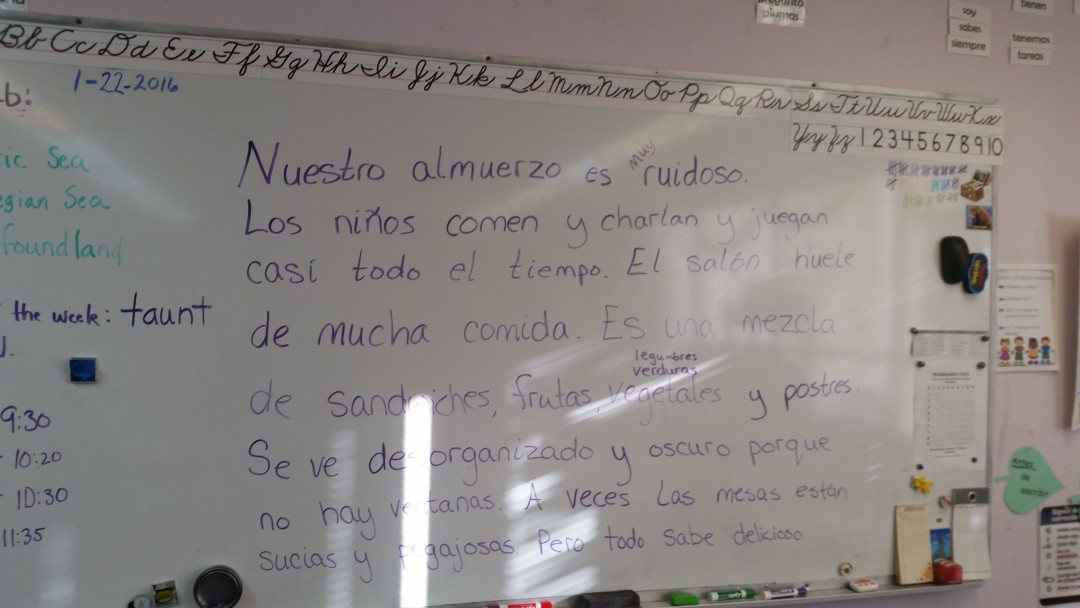 Bb Cc Dd Ee Ff Gg Hh Ii Jj Kk Ll Mm Nn Oo Pp Qq Rr Ss Tt Uu Vv Ww Xx
Yy Zz 1 2 3 4 5 6 7 8 9 10
plumas
soy
sabes
siempre
tienen
tenemos
tareas
1-22-2016
b:
ic Sea
egian Sea
foundland
the week: taunt
9:30
10:20
10:30
11:35
Nuestro almuerzo es muy ruidoso.
Los niños comen y charlan y juegan
casi todo el tiempo. El salón huele
de mucha comida. Es una mezcla
legumbres
verduras
de sandwiches, frutas, vegetales y postres.
Se ve desorganizado y oscuro porque
no hay ventanas. A veces las mesas están
sucias y pegajosas. Pero todo sabe delicioso
Antes
de
escribir